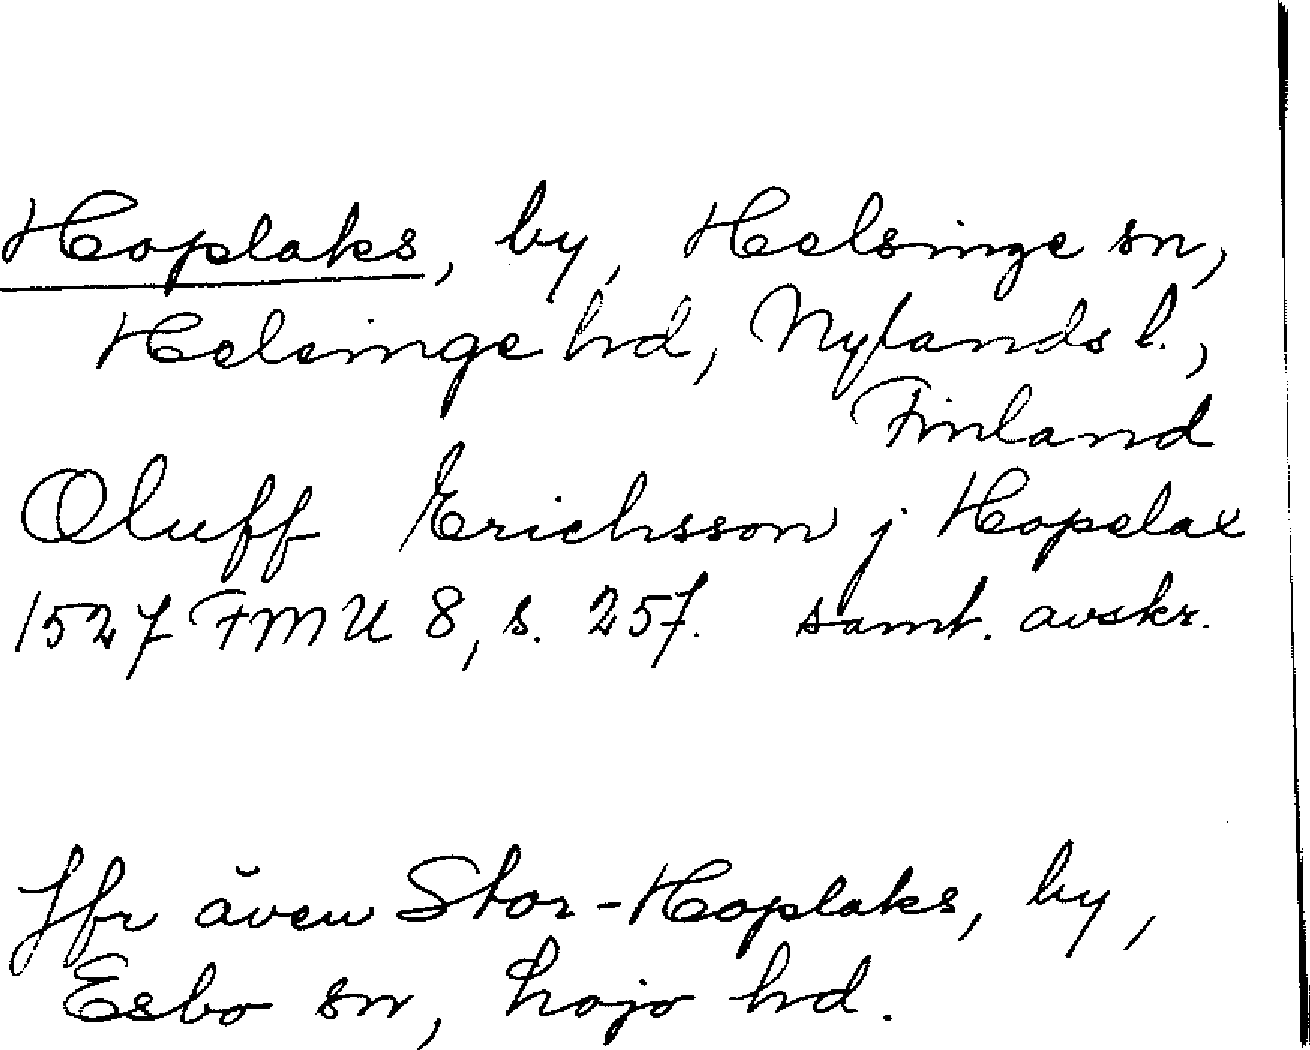 Hoplaks, by, Helsinge sn,
Helsinge hd, Nylands l.,
Finland
Oluff Erichsson j Hopelax
1527 FMU 8, s. 257. samt. avskr.
Jfr även Stor-Hoplaks, by,
Esbo sn, Lojo hd.